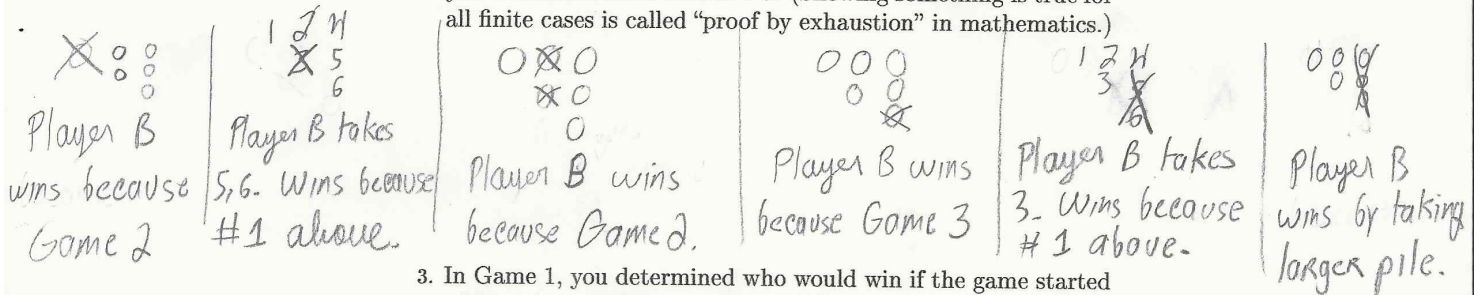 all finite cases is called “proof by exhaustion” in mathematics.)
Player B
wins because
Game 2
1 2 4
3 5
6
Player B takes
5,6. Wins because
#1 above.
Player B wins
because Game 2.
Player B wins
because Game 3
1 2 4
3 5
6
Player B takes
3. Wins because
#1 above.
Player B
wins by taking
larger pile.
3. In Game 1, you determined who would win if the game started